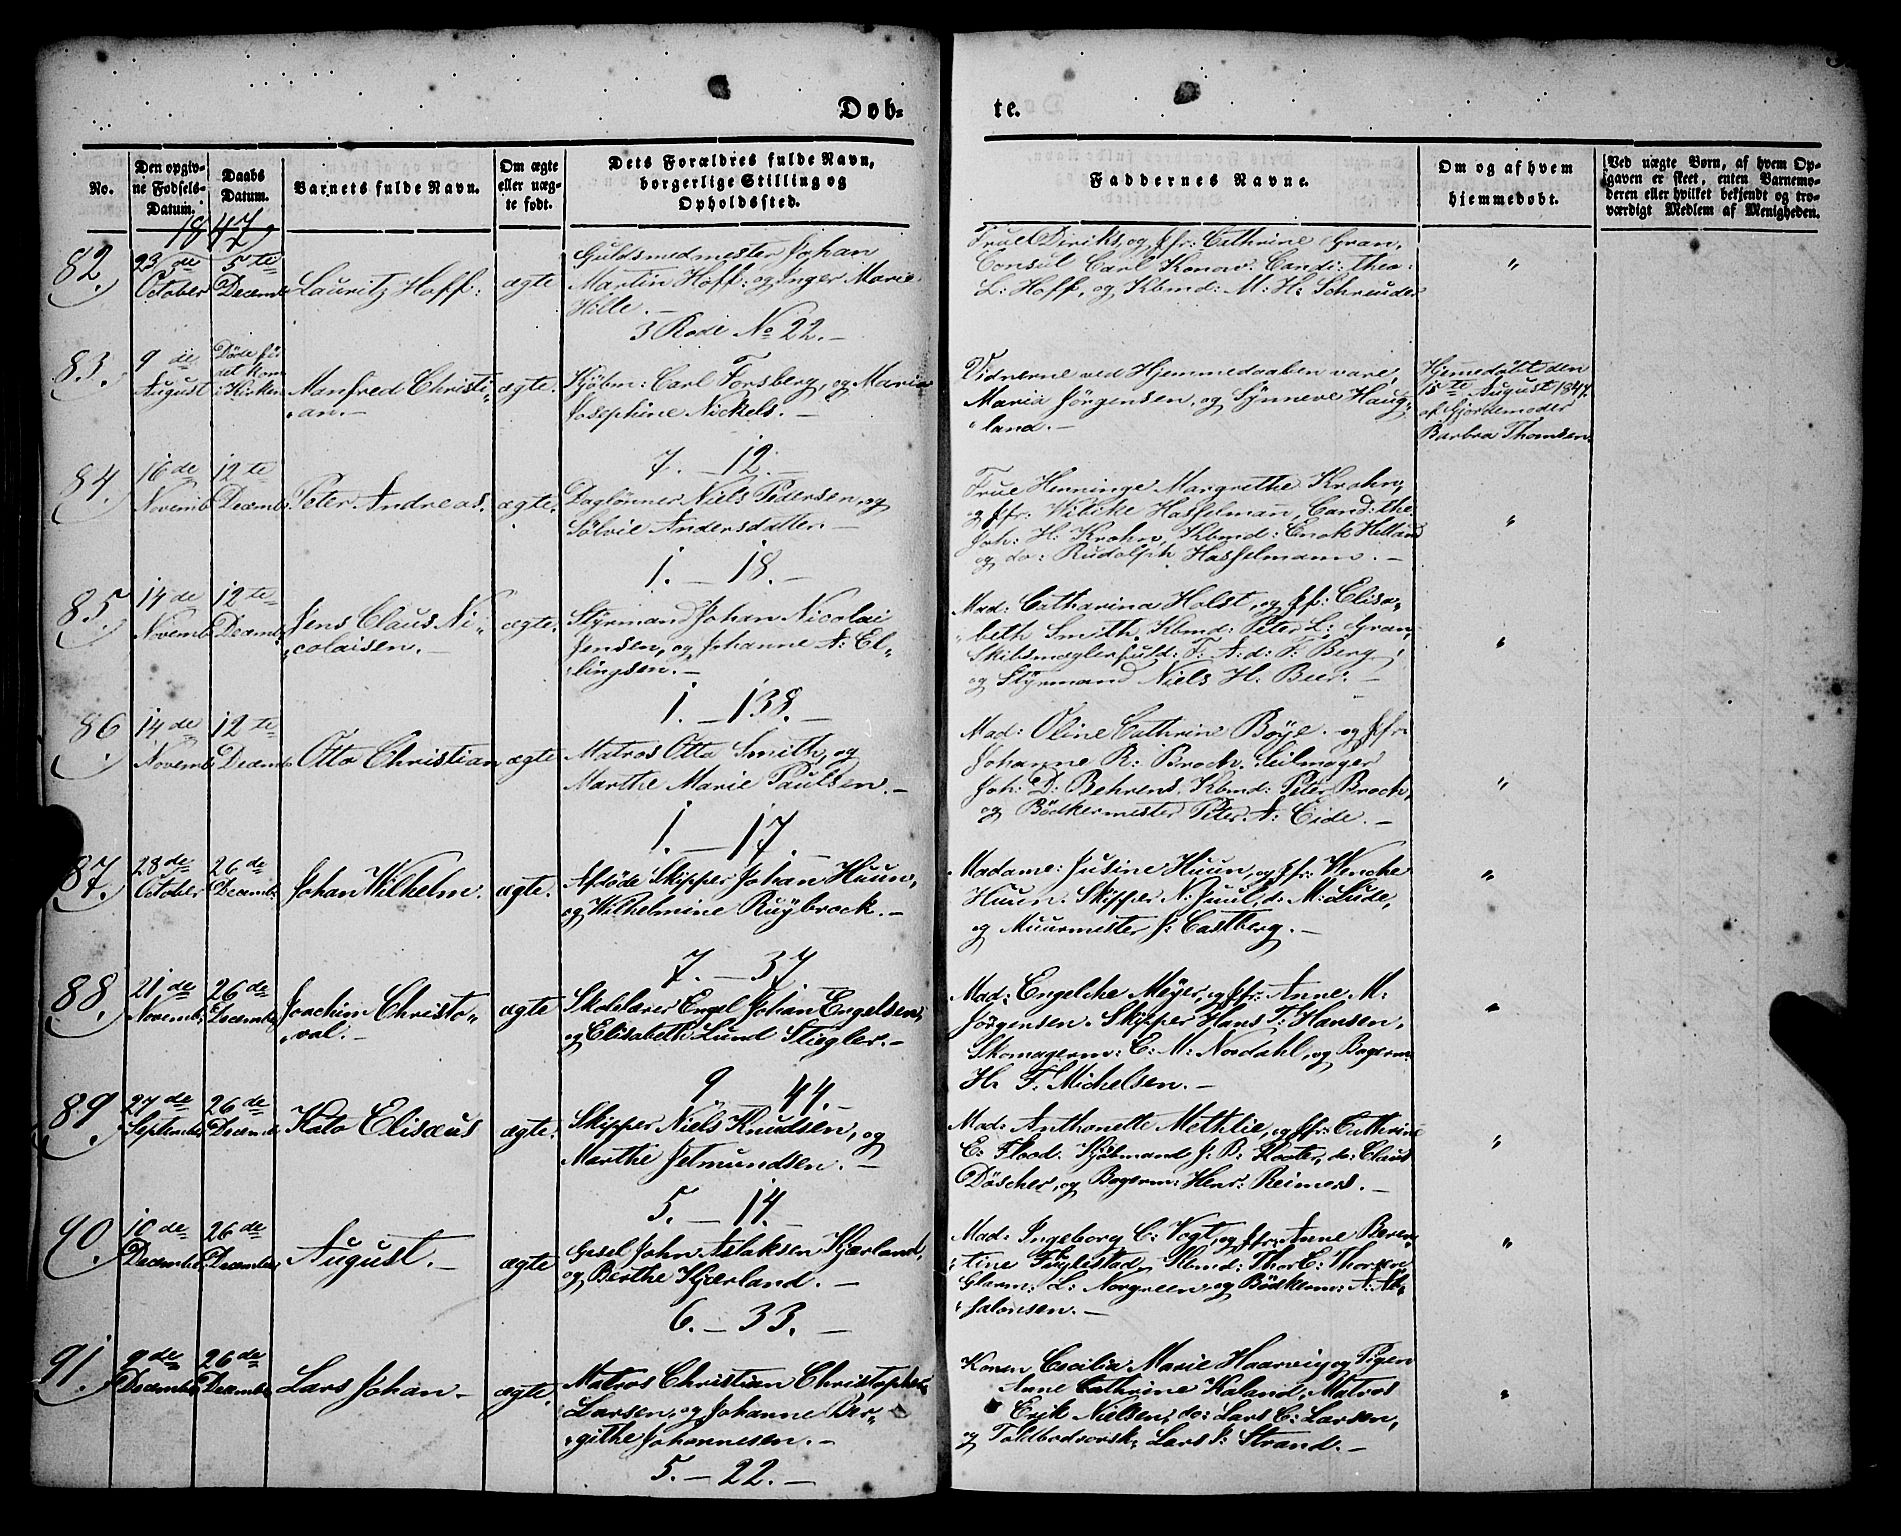 Dob-
te.
No.
Den opgiv-
ne Fødsels-
Datum.
Daabs
Datum.
Barnets fulde Navn.
Om ægte
eller uæg-
te født.
Dets Forældres fulde Navn,
borgerlige Stilling og
Opholdssted.
Faddernes Navne.
Om og af hvem
hjemmedøbt.
Ved uægte Børn, af hvem Op-
gaven er skeet, enten Barnemo-
deren eller hvilket bekjendt og tro-
værdigt Medlem af Menigheden.
1847
82.
23de
October
5te
Decemb
Lauritz Hoff:
ægte
Guldsmedmester Johan
Martin Hoff: og Inger Marie
Hille.-
3 Rode No 22.-
Frue Diriks, og Jfr: Cathrine Gran,
Consul Carl Konow. Candi: theo:
L: Hoff, og Kbmd: M: H: Schreuder
"
83.
9de
August
Døde før
det kom
i Kirken
Manfred Christi-
an.-
ægte.
Kjøbm: Carl Forsberg, og Maria
Josephine Nickels.-
7.-12.-
Vidnerne ved Hjemmedaaben vare,
Maria Jörgensen, og Synneve Haug-
land.-
Hjemedøbt den
15te August 1847.
af Gjordemoder
Barbra Thomsen.
84.
16de
Novemb
12te
Decemb.
Peter Andreas.
ægte.
Daglönner Niels Pedersen, og
Sölvie Andersdatter.-
1.-18.-
Frue Henninge Margrethe Krohn,
og Jfr: Wilike Hasselman, Cand: the
Joh: H: Krohn, Kbmd: Enok Helland
og do: Rudolph Hasselmann.-
"
85.
14de
Novemb
12te
Decemb.
Jens Claus Ni-
colaisen.-
ægte.
Styrmand Johan Nicolai
Jensen, og Johanne A: El-
lingsen.-
1.-138.-
Mad: Catharina Holst, og Jfr: Elisa-
beth Smith. Kbmd: Peter L: Gran,
Skibsmæglerfuld: F: A: d: F: Berg,
og Styrmand Niels H: Buer.-
"
86.
14de
Novemb
12te
Decemb.
Otto Christian
ægte
Matros Otto Smith, og
Marthe Marie Paulsen.-
1.-17.
Mad: Oline Cathrine Böye. og Jfr:
Johanne R: Broch. Seilmager
Joh: D: Behrens. Kbmd: Peter Broch,
og Bödkermester Peter A: Eide.-
"
87.
28de
October
26de
Decemb.
Johan Wilhelm.
ægte.
Afdöde Skipper Johan Huun,
og Wilhelmine Ruybrock.-
7.-37
Madame: Jusine Huun, og Jfr: Wenche
Huun. Skipper N: Juul, do M: Lude,
og Muurmester J: Castberg.-
"
88.
21de
Novemb.
26de
Decembr
Joachim Christo-
val.-
ægte
Skolelærer Engel Johan Engelsen,
og Elisabeth Lund Stiegler.-
9 44.-
Mad: Engelche Meyer, og Jfr: Anne M:
Jörgensen. Skipper Hans T: Hansen,
Skomagerm: C: M: Nordahl, og Bagerm:
H: F. Michelsen.-
"
89.
27de
September
26de
Decemb
Kato Elisæus
ægte.
Skipper Niels Knudsen, og
Marthe Jetmundsen.-
5.-14.-
Mad: Anthonette Methlie, og Jfr: Cathrine
C: Flood. Kjöbmand J: B: Kooter, do: Claus
Döscher, og Bagerm: Henr: Reimers.-
"
90.
10de
Decembr
26de
Decembr
August.-
ægte
Gesel John Aslaksen Kjærland,
og Berthe Kjærland.-
6.-33.-
Mad: Ingeborg C: Vogt, og Jfr: Anne Beren-
tine Fuglestad. Kbmd: Thor C: Thorsen
Glarm: L: Norgreen, og Bödkerm: A: Ab-
salonsen.-
"
91.
9de
Decembr
26de
Decembr
Lars Johan-
ægte.
Matros Christian Christopher
Larsen, og Johanne Ber-
githe Johannesen.-
5.-22.-
Konen Cecilia Marie Haarvig, og Pigen
Anne Cathrine Kaland, Matros
Erik Nielsen, do: Lars C: Larsen,
og Toldbodvorsk: Lars J: Strand.-
"